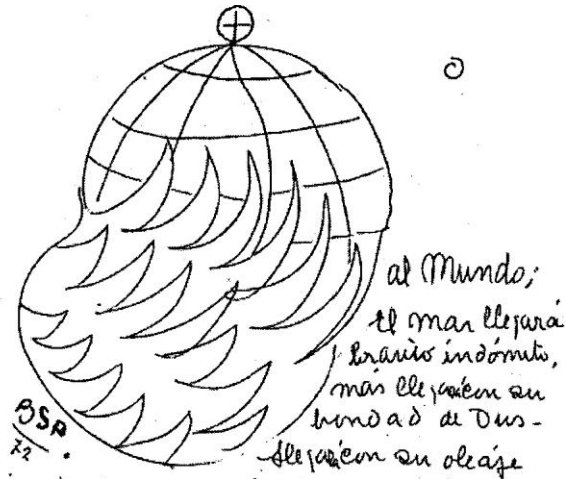 al Mundo;
El mar llegará
bravío indómito,
más llegará con su
bondad de Dios-
llegará con su oleaje
BSP
72